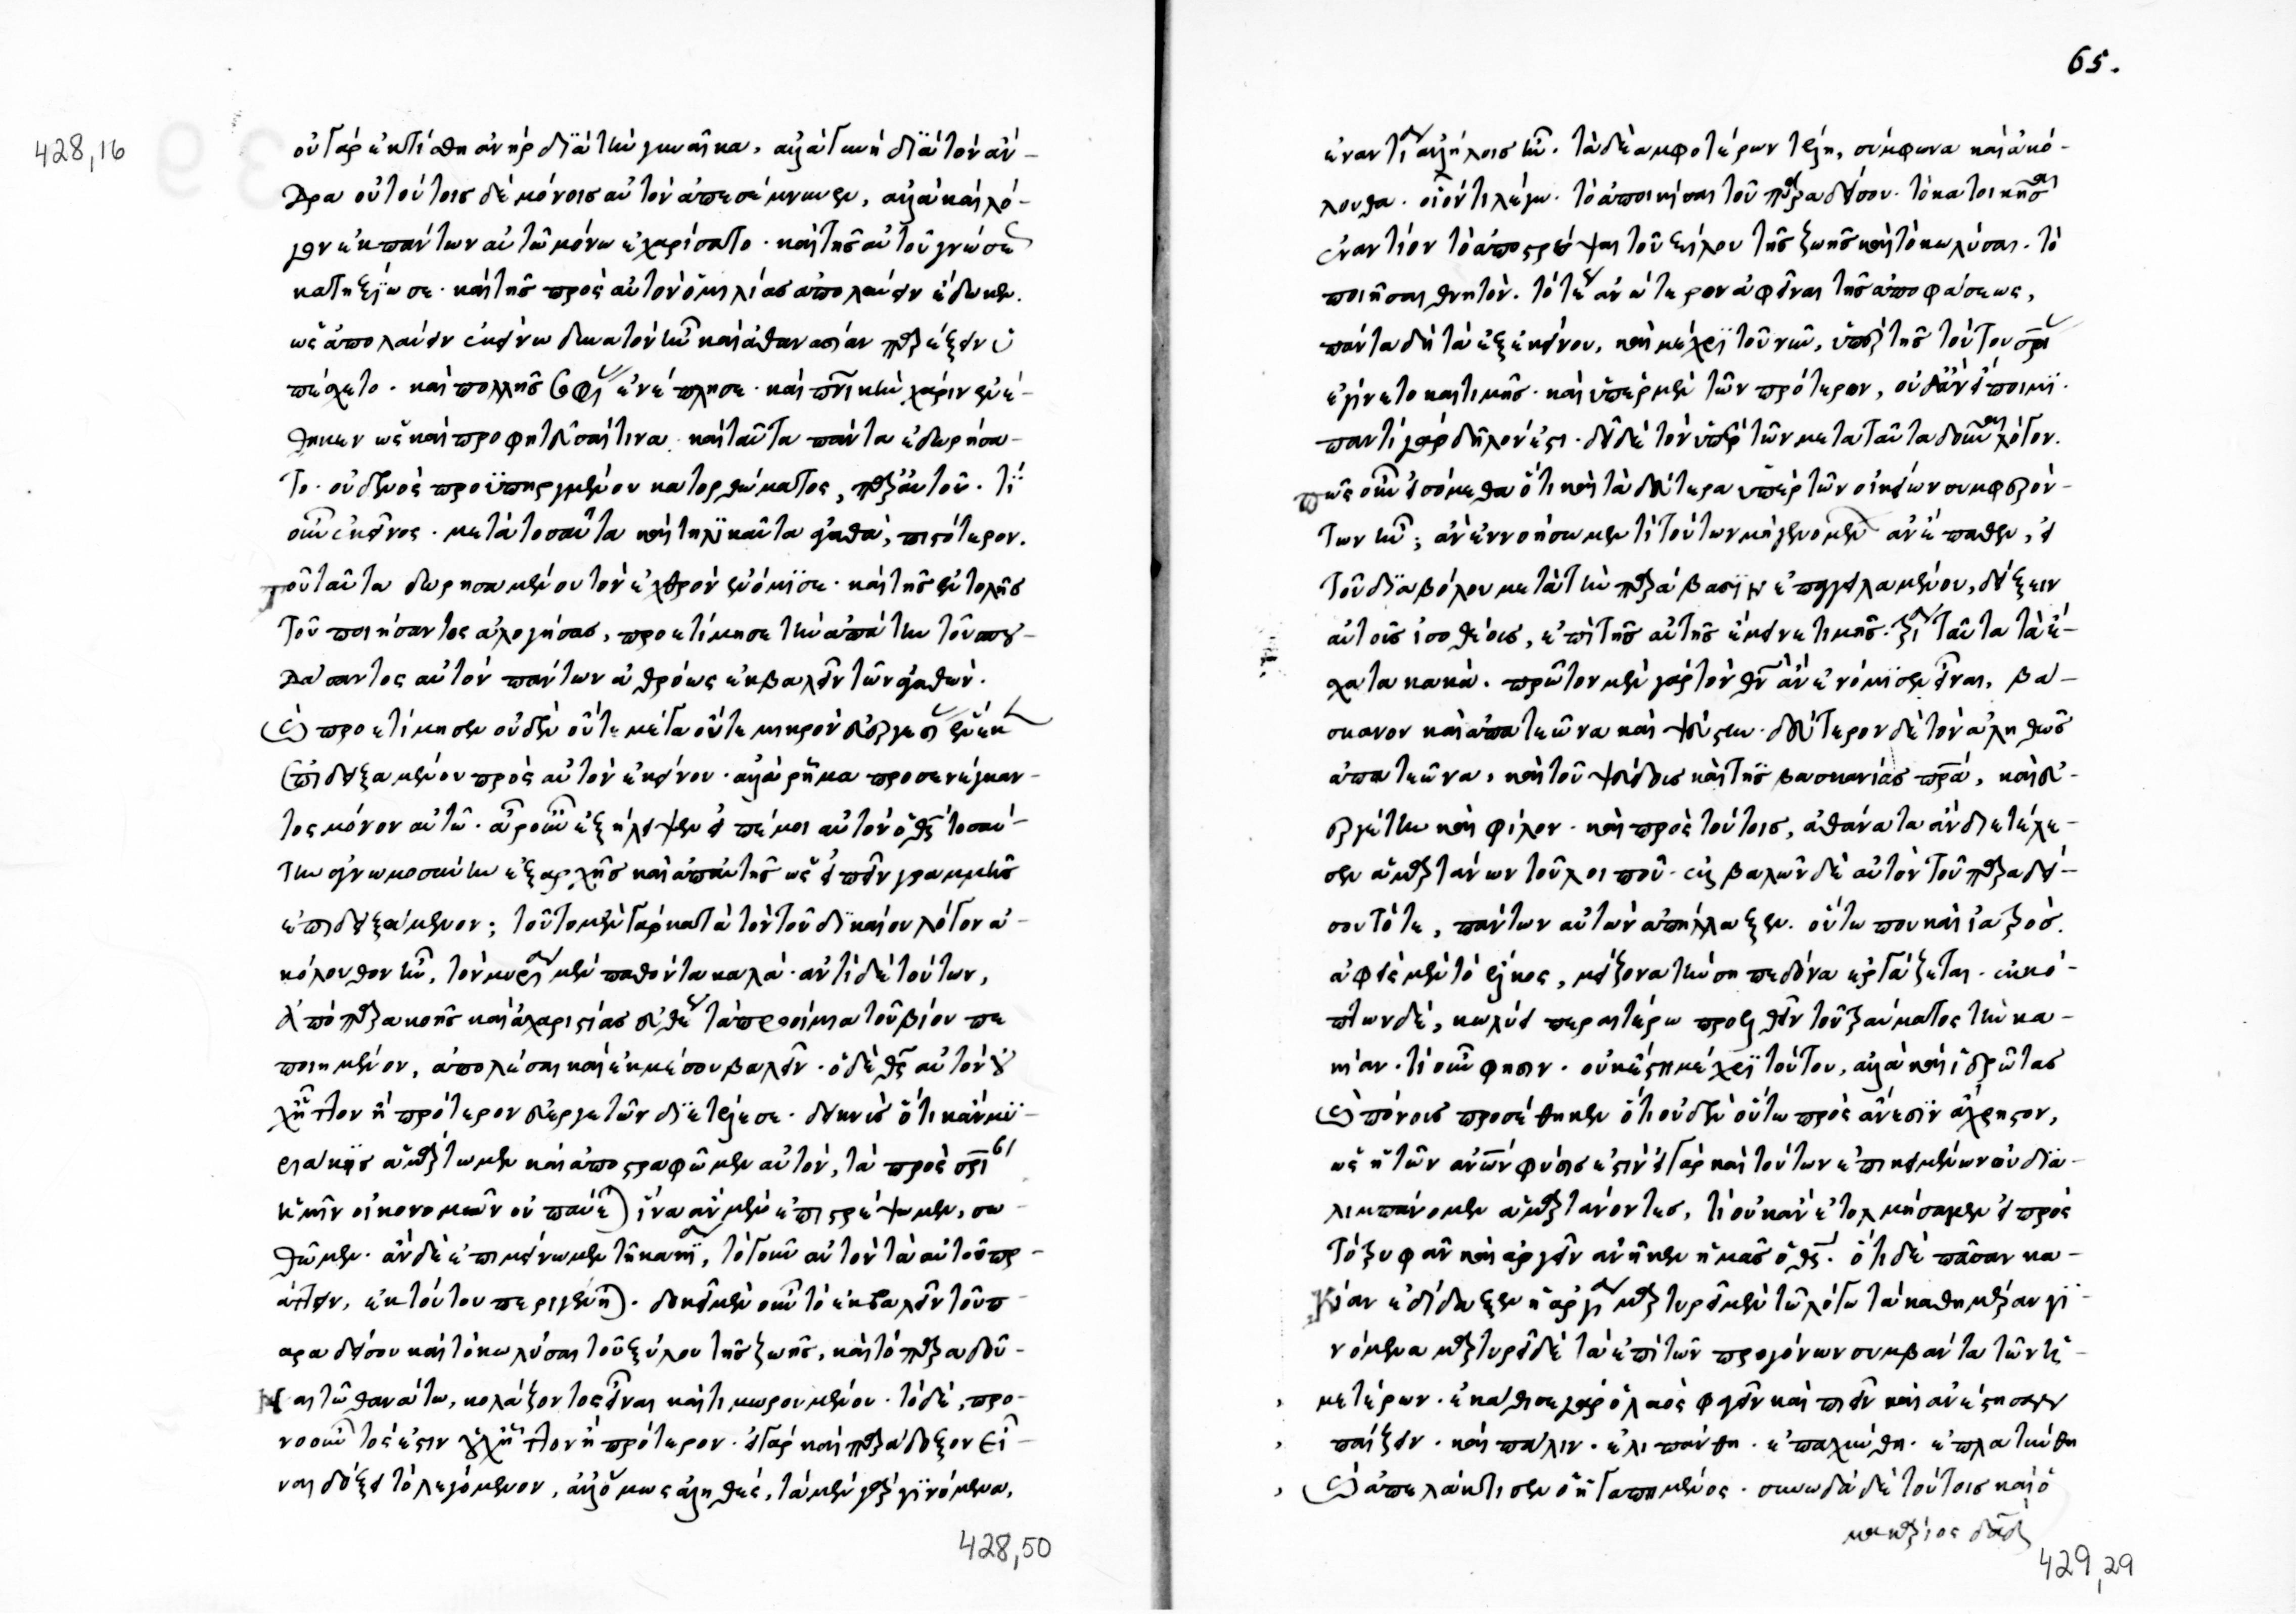 428,16
οὐ γὰρ ἐκτίσθη ἀνὴρ διὰ τὴν γυναῖκα, ἀλλὰ γυνὴ διὰ τὸν ἄν-
δρα οὐ τούτοις δὲ μόνοις αὐτὸν ἀπεσέμνυνεν, ἀλλὰ καὶ λό-
γον ἐκ πάντων αὐτῷ μόνῳ ἐχαρίσατο. καὶ τῆς αὐτοῦ γνώσεως
κατηξίωσε. καὶ τῆς πρὸς αὐτὸν ὁμιλίας ἀπολαύειν ἔδωκεν.
ὡς ἀπολαύειν ἐκείνῳ δυνατὸν ἦν καὶ ἀθανασίαν παρέξειν ὑ
πέσχετο. καὶ πολλῆς σοφίας ἐνέπλησε. καὶ πνευματικὴν χάριν ἐνέ-
θηκεν ὡς καὶ προφητεῦσαί τινα. καὶ ταῦτα πάντα ἐδωρήσα-
το. οὐδενὸς προϋπηργμένου κατορθώματος, παρ' αὐτοῦ. τί
οὖν ἐκεῖνος. μετὰ τοσαῦτα καὶ τηλικαῦτα ἀγαθά, πιστότερον.
τοῦ ταῦτα δωρησαμένου τὸν ἐχθρὸν ἐνόμισε. καὶ τῆς ἐντολῆς
τοῦ ποιήσαντος ἀλογήσας, προετίμησε τὴν ἀπάτην τοῦ σπου-
δάσαντος αὐτὸν πάντων ἀθρόως ἐκβαλεῖν τῶν ἀγαθῶν.
καὶ προετίμησεν οὐδὲν οὔτε μέγα οὔτε μικρὸν εὐεργεσίας ἕνεκεν
ἐπιδειξαμένου πρὸς αὐτὸν ἐκείνου. ἀλλὰ ῥῆμα προσενέγκαν-
τος μόνον αὐτῷ. ἆρ' οὖν ἐξήλειψεν εἰπέ μοι αὐτὸν ὁ θεὸς τοσαύ-
την ἀγνωμοσύνην ἐξ ἀρχῆς καὶ ἀπ' αὐτῆς ὡς εἰπεῖν γραμμῆς
ἐπιδειξάμενον; τοῦτο μὲν γὰρ κατὰ τὸν τοῦ δικαίου λόγον ἀ-
κόλουθον ἦν, τὸν μυρία μὲν παθόντα καλά. ἀντὶ δὲ τούτων,
ἀπὸ παρακοῆς καὶ ἀχαριστίας εὐθέως τὰ προοίμια τοῦ βίου πε
ποιημένον, ἀπολέσαι καὶ ἐκ μέσου βαλεῖν. ὁ δὲ θεὸς αὐτὸν οὐ
χ ἧττον ἢ πρότερον εὐεργετῶν διετέλεσε. δεικνὺς ὅτι κἂν μυ-
ριάκις ἁμάρτωμεν καὶ ἀποστραφῶμεν αὐτόν, τὰ πρὸς σωτηρίαν
ἡμῖν οἰκονομῶν οὐ παύεται ἵνα ἂν μὲν ἐπιστρέψωμεν, σω-
θῶμεν. ἂν δὲ ἐπιμείνωμεν τῇ κακίᾳ, τὸ γοῦν αὐτὸν τὰ αὐτοῦ πρ-
άττειν, ἐκ τούτου περιγένηται. δοκεῖ μὲν οὖν τὸ ἐκβαλεῖν τοῦ π-
αραδείσου καὶ τὸ κωλῦσαι τοῦ ξύλου τῆς ζωῆς, καὶ τὸ παραδοῦ-
ναι τῷ θανάτῳ, κολάζοντος εἶναι καὶ τιμωρουμένου. τὸ δὲ, προ-
νοοῦντός ἐστιν οὐχ ἧττον ἢ πρότερον. εἰ γὰρ καὶ παράδοξον εἶ-
ναι δόξει τὸ λεγόμενον, ἀλλ' ὅμως ἀληθές, τὰ μὲν γὰρ γινόμενα,
428,50
65.
ἐναντία ἀλλήλοις ἦν. τὰ δὲ ἀμφοτέρων τέλη, σύμφωνα καὶ ἀκό-
λουθα. οἷόν τι λέγω. τὸ ἀποικίσαι τοῦ παραδείσου. τὸ κατοικῆσαι
ἐναντίον τὸ ἀποστρέψαι τοῦ ξύλου τῆς ζωῆς καὶ τὸ κωλῦσαι. τὸ
ποιῆσαι θνητόν. τότε ἀνώτερον ἀφεῖναι τῆς ἀποφάσεως,
πάντα δὴ τὰ ἐξ ἐκείνου, καὶ μέχρι τοῦ νῦν, ὑπὲρ τῆς τούτου σωτηρίας
ἐγίνετο καὶ τιμῆς. καὶ ὑπὲρ μὲν τῶν πρότερον, οὐδὲν ἂν εἴποιμι.
παντὶ γὰρ δῆλόν ἐστι. δεῖ δὲ τὸν ὑπὲρ τῶν μετὰ ταῦτα δοῦναι λόγον.
πῶς οὖν εἰσόμεθα ὅτι καὶ τὰ δεύτερα ὑπὲρ τῶν οἰκείων συμφερόν-
των ἦν; ἂν ἐννοήσωμεν τί τούτων μὴ γενομένων ἂν ἔπαθεν, εἰ
τοῦ διαβόλου μετὰ τὴν παράβασιν ἐπαγγειλαμένου, δείξειν
αὐτοὺς ἰσοθέους, ἐπὶ τῆς αὐτῆς ἔμεινε τιμῆς. τρία ταῦτα τὰ ἔ-
σχατα κακά. πρῶτον μὲν γὰρ τὸν θεὸν ἂν ἐνόμισεν εἶναι, βά-
σκανον καὶ ἀπατεῶνα καὶ ψεύστην. δεύτερον δὲ τὸν ἀληθῶς
ἀπατεῶνα, καὶ τοῦ ψεύδους καὶ τῆς βασκανίας πατέρα, καὶ εὐ-
εργέτην καὶ φίλον. καὶ πρὸς τούτοις, ἀθάνατα ἂν διετέλε-
σεν ἁμαρτάνων τοῦ λοιποῦ. ἐκβαλὼν δὲ αὐτὸν τοῦ παραδεί-
σου τότε, πάντων αὐτῶν ἀπήλλαξεν. οὕτω που καὶ ἰατρός.
ἀφεὶς μὲν τὸ ἕλκος, μείζονα τὴν σηπεδόνα ἐργάζεται. ἐκκό-
πτων δὲ, κωλύει περαιτέρω προελθεῖν τοῦ τραύματος τὴν κα-
κίαν. τί οὖν φησιν. οὐκ ἔστη μέχρι τούτου, ἀλλὰ καὶ ἱδρῶτας
καὶ πόνους προσέθηκεν ὅτι οὐδὲν οὕτω πρὸς ἄνεσιν ἄχρηστον,
ὡς ἡ τῶν ἀνθρώπων φύσις ἐστίν εἰ γὰρ καὶ τούτων ἐπικειμένων οὐ δια-
λιμπάνομεν ἁμαρτάνοντες, τί οὐκ ἂν ἐτολμήσαμεν εἰ πρὸς
τὸ τρυφᾶν καὶ ἀργεῖν ἀνῆκεν ἡμᾶς ὁ θεός. ὅτι δὲ πᾶσαν κα-
κίαν ἐδίδαξεν ἡ ἀργία μαρτυρεῖ μὲν τῷ λόγῳ τὰ καθημέραν γι-
νόμενα μαρτυρεῖ δὲ τὰ ἐπὶ τῶν προγόνων συμβάντα τῶν ἡ-
μετέρων. ἐκάθισε γὰρ ὁ λαὸς φαγεῖν καὶ πιεῖν καὶ ἀνέστησαν
παίζειν. καὶ πάλιν. ἐλιπάνθη. ἐπαχύνθη. ἐπλατύνθη
καὶ ἀπελάκτισεν ὁ ἠγαπημένος. συνῳδὰ δὲ τούτοις καὶ ὁ
μακάριος δαδ
429,29